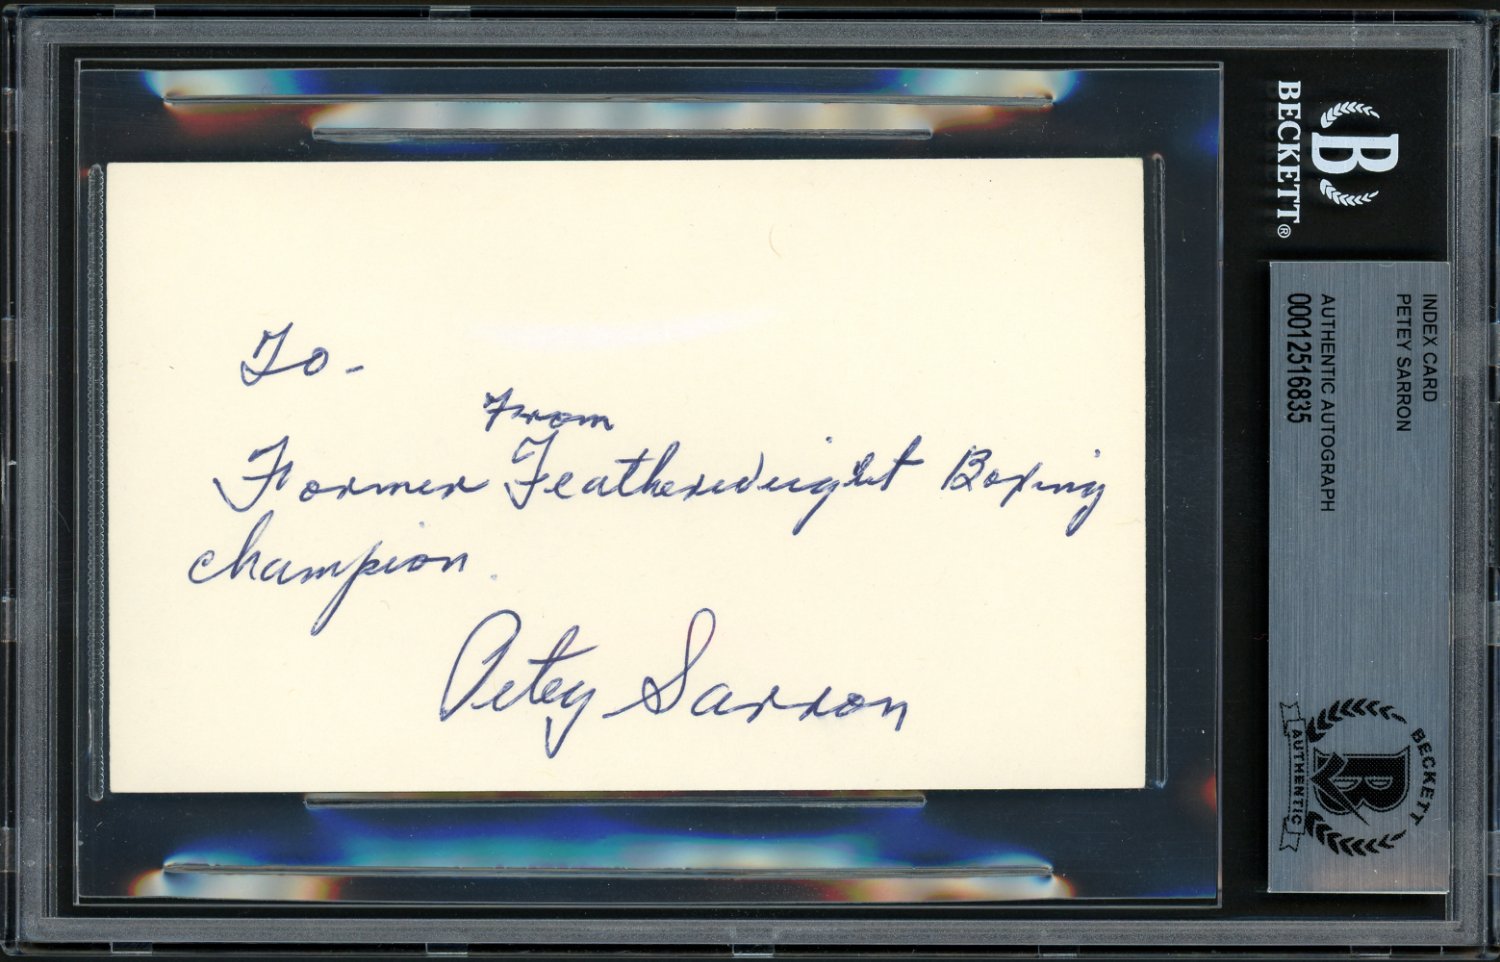 To -
From
Former Featherweight Boxing
champion.
Petey Sarron
BECKETT®
B
INDEX CARD
PETEY SARRON
AUTHENTIC AUTOGRAPH
00012516835
BECKETT
B
AUTHENTIC